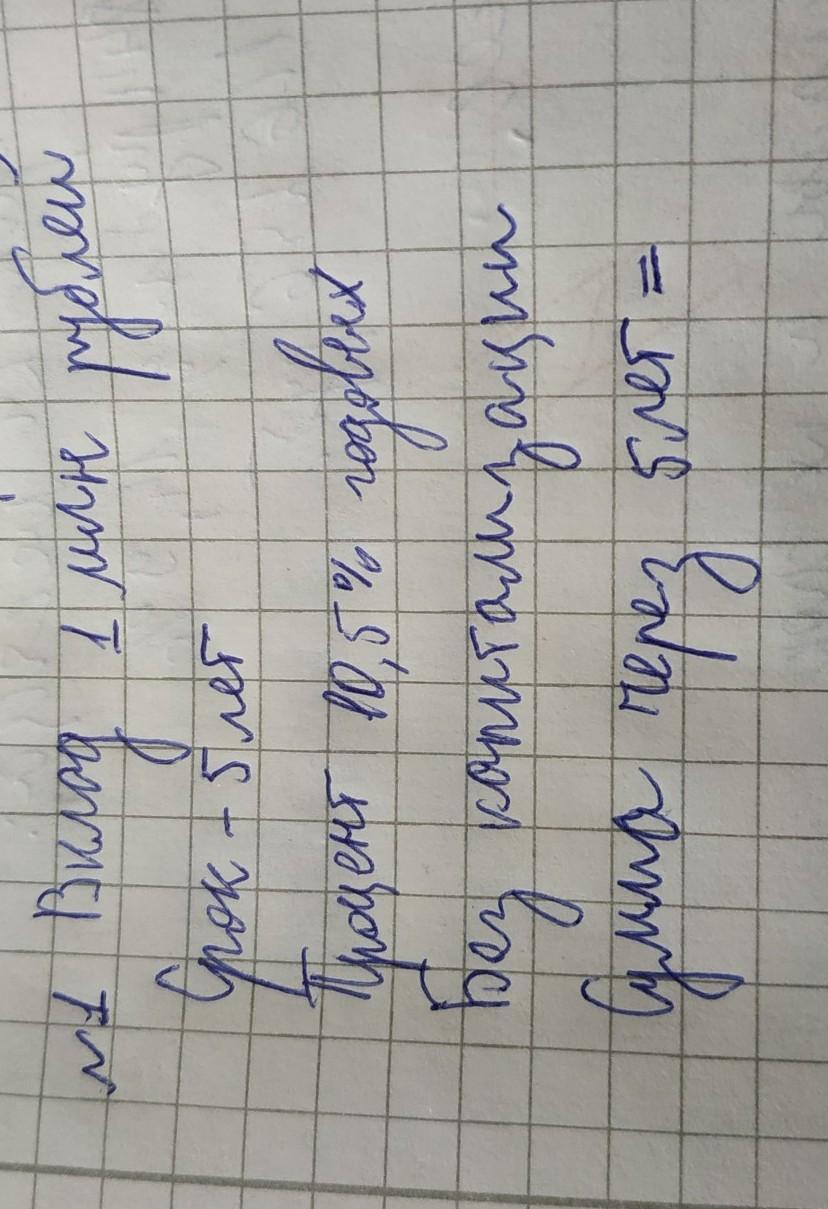 №1 Вклад 1 млн рублей
Срок - 5 лет
Процент 10,5% годовых
Без капитализации
Сумма через 5 лет =